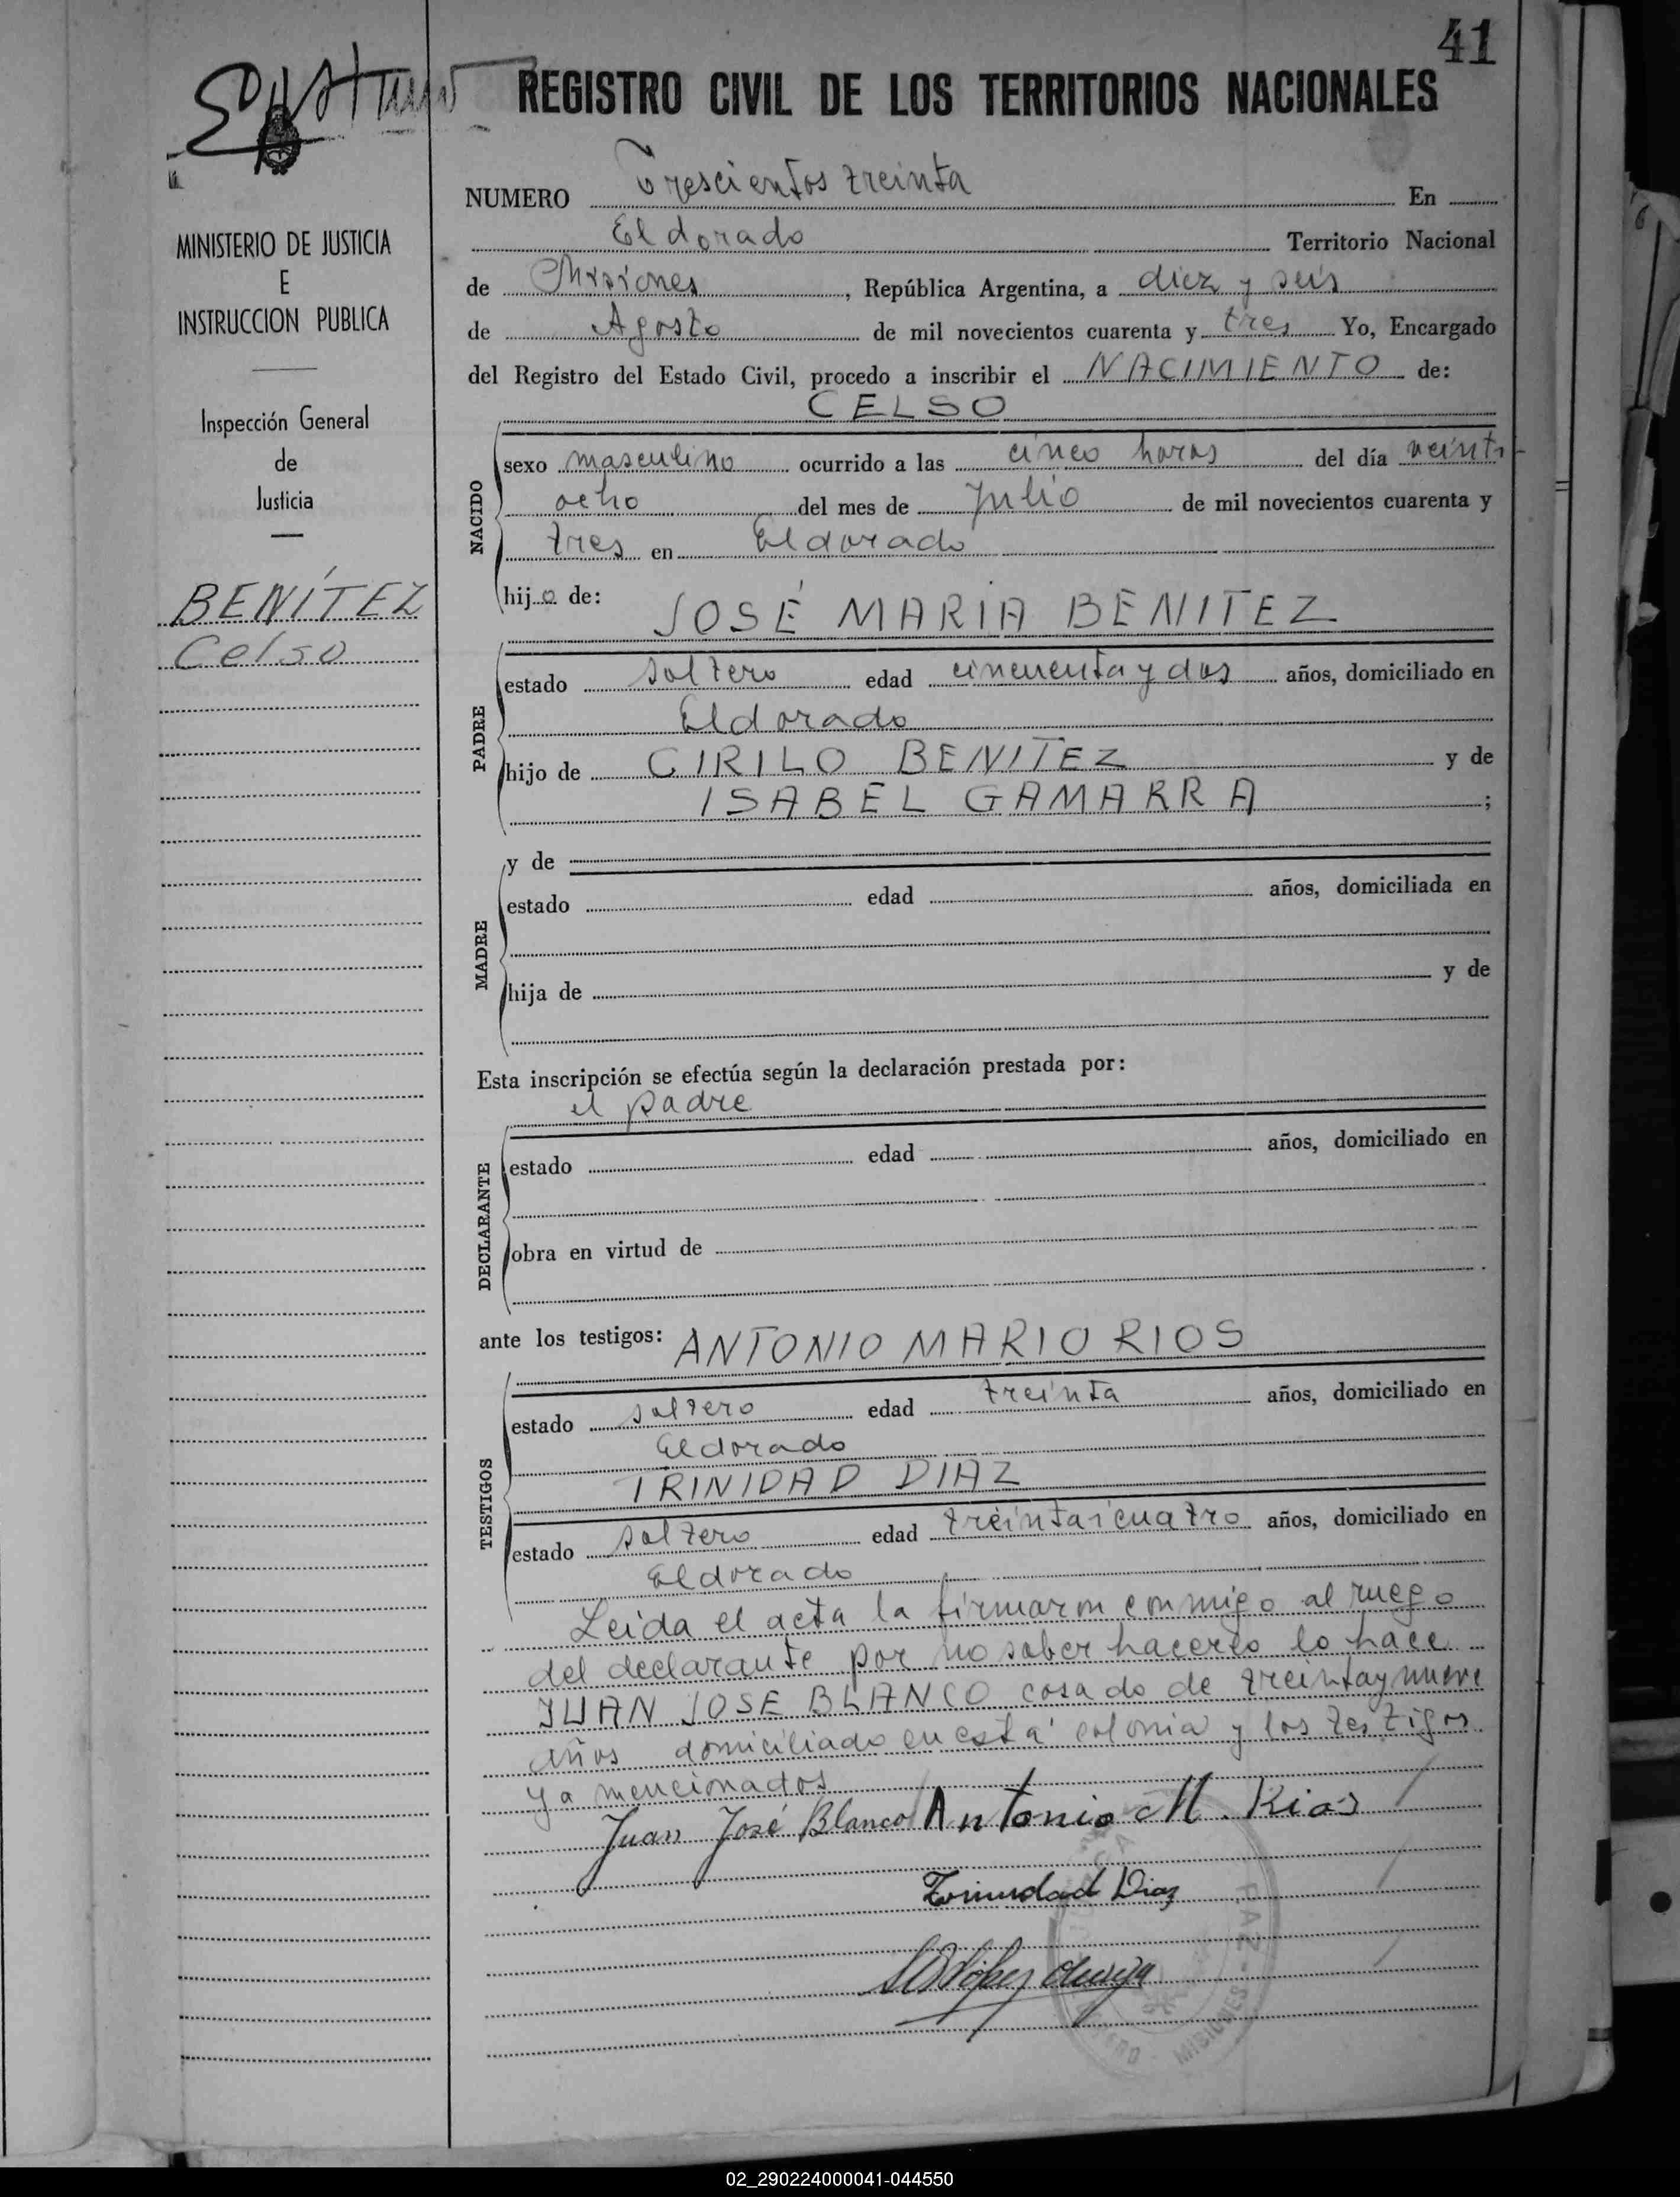 41
REGISTRO CIVIL DE LOS TERRITORIOS NACIONALES
MINISTERIO DE JUSTICIA
E
INSTRUCCION PUBLICA
Inspección General
de
Justicia
BENÍTEZ
Celso
NUMERO Trescientos treinta En
Eldorado Territorio Nacional
de Misiones, República Argentina, a diez y seis
de Agosto de mil novecientos cuarenta y tres Yo, Encargado
del Registro del Estado Civil, procedo a inscribir el NACIMIENTO de:
CELSO
NACIDO
sexo masculino ocurrido a las cinco horas del día veinti-
ocho del mes de Julio de mil novecientos cuarenta y
tres en Eldorado
hijo de: JOSÉ MARIA BENITEZ
PADRE
estado soltero edad cincuenta y dos años, domiciliado en
Eldorado
hijo de CIRILO BENITEZ y de
ISABEL GAMARRA ;
MADRE
y de
estado edad años, domiciliada en
hija de y de
Esta inscripción se efectúa según la declaración prestada por:
el padre
DECLARANTE
estado edad años, domiciliado en
obra en virtud de
ante los testigos: ANTONIO MARIO RIOS
TESTIGOS
estado soltero edad treinta años, domiciliado en
Eldorado
TRINIDAD DIAZ
estado soltero edad treintaicuatro años, domiciliado en
Eldorado
Leida el acta la firmaron conmigo al ruego
del declarante por no saber hacerlo lo hace
JUAN JOSE BLANCO casado de treintaynueve
años domiciliado en esta colonia y los testigos
ya mencionados
Juan José Blanco Antonio M. Rios
Trinidad Diaz
PAZ - MISIONES
02_290224000041-044550